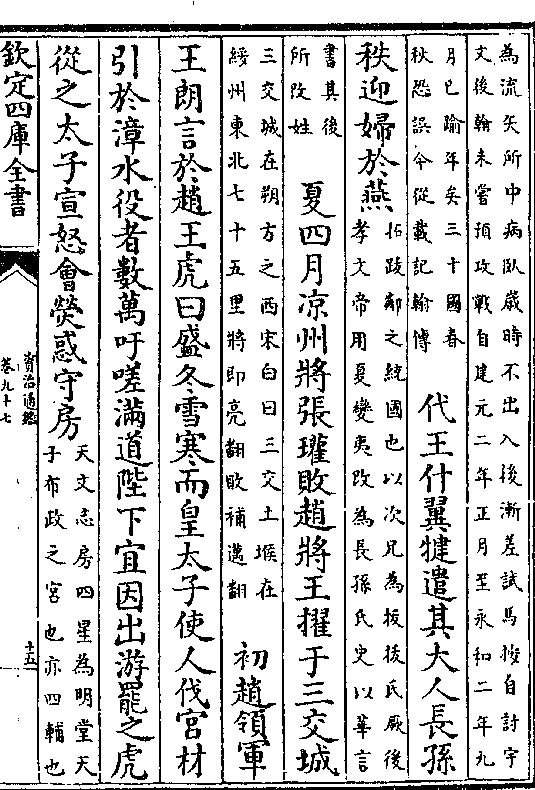 為流矢所中病臥歲時不出入後漸差試馬按自討宇
文後翰未嘗預攻戰自建元二年正月至永和二年九
月已踰年矣三十國春
秋恐誤今從載記翰傳
代王什翼犍遣其大人長孫
秩迎婦於燕
拓跋鄰之統國也以次兄為拔拔氏厥後
孝文帝用夏變夷改為長孫氏史以華言
書其後
所改姓
夏四月凉州將張瓘敗趙將王擢于三交城
三交城在朔方之西宋白曰三交土堠在
綏州東北七十五里將即亮翻敗補邁翻
初趙領軍
王朗言於趙王虎曰盛冬雪寒而皇太子使人伐宮材
引於漳水役者數萬吁嗟滿道陛下宜因出游罷之虎
從之太子宣怒會熒惑守房
天文志房四星為明堂天
子布政之宮也亦四輔也
欽定四庫全書
資治通鑑
卷九十七
十五